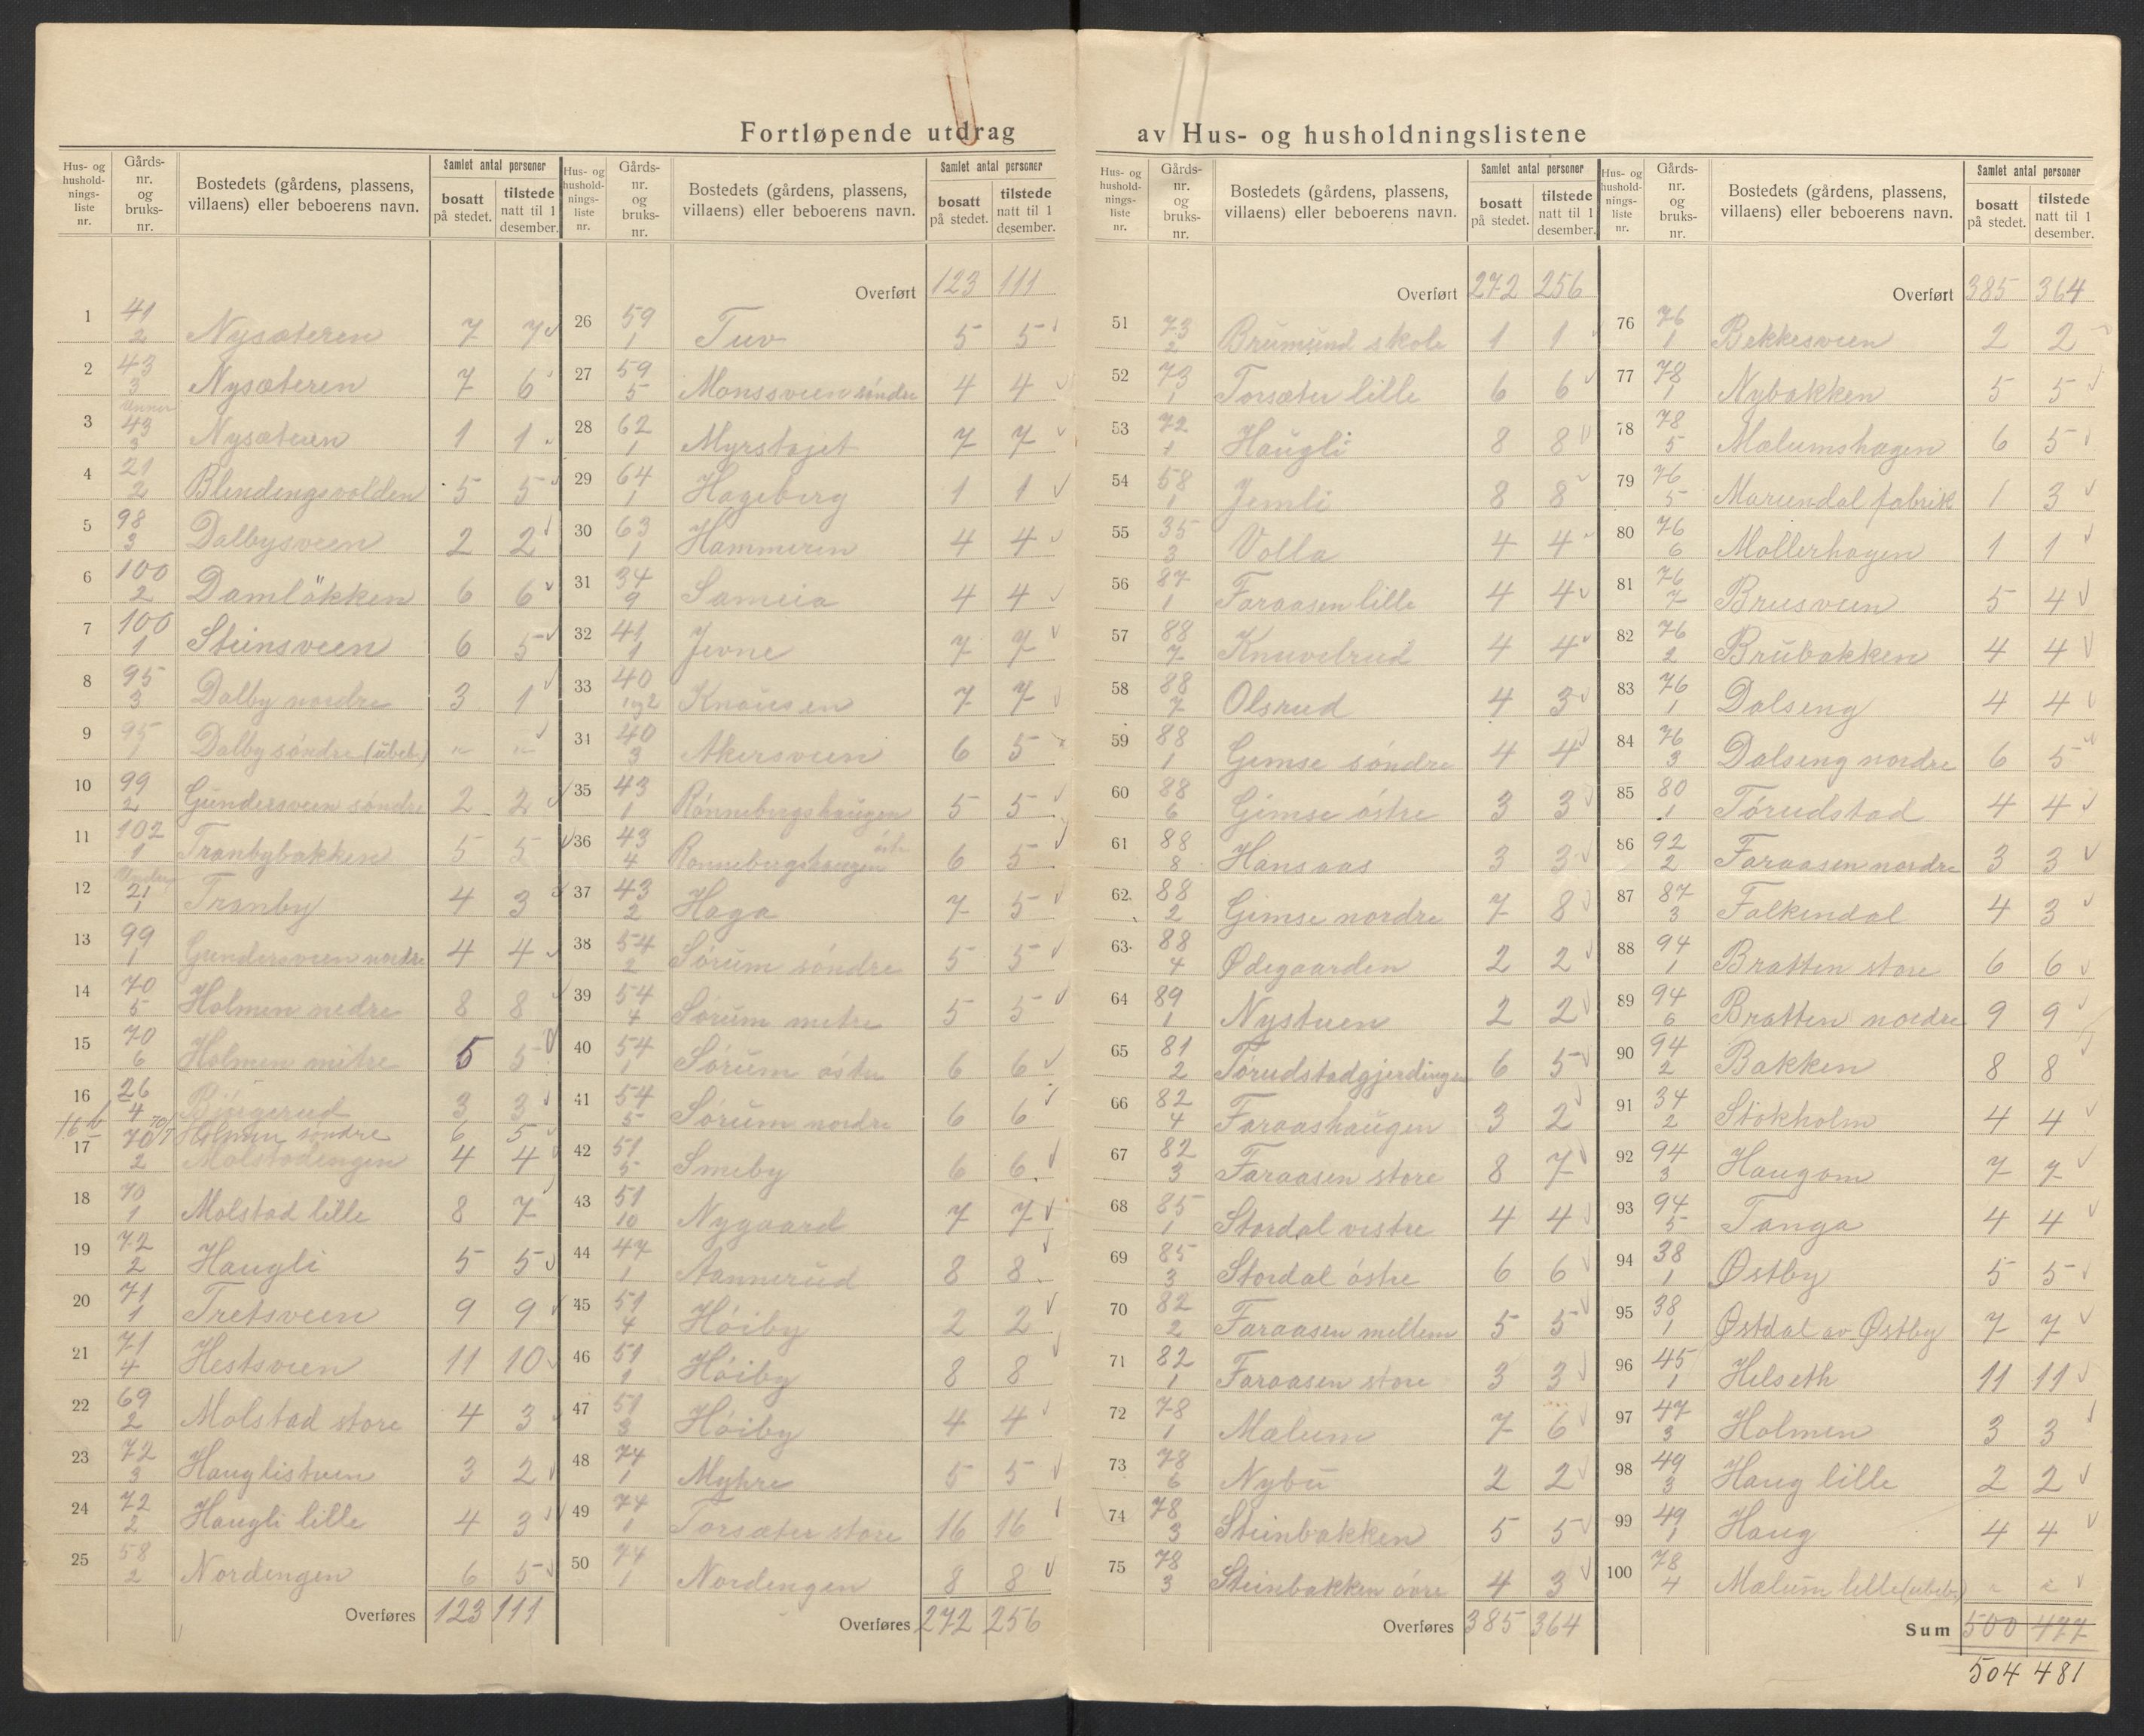 Fortløpende utdrag av Hus- og husholdningslistene
Hus- og husholdningsliste nr. Gårds-nr. og bruks-nr. Bostedets (gårdens, plassens, villaens) eller beboerens navn. Samlet antal personer bosatt på stedet. tilstede natt til 1 desember.
1 41 2 Nysæteren 7 7
2 43 3 Nysæteren 7 6
3 43 3 Nysæteren 1 1
4 21 2 Blendengsvolden 5 5
5 98 3 Dalbysveen 2 2
6 100 2 Damlökken 6 6
7 100 1 Steinsveen 6 5
8 95 3 Dalby nordre 3 1
9 95 1 Dalby søndre (ubeb.) " "
10 99 2 Gundersveen søndre 2 2
11 102 1 Tranbybakken 5 5
12 Under 21 1 Tranby 4 3
13 99 1 Gundersveen nordre 4 4
14 70 5 Holmen nedre 8 8
15 70 6 Holmen mitre 5 5
16 26 4 Bjørgerud 3 3
16 b 70/7 Holmen søndre 6 5
17 70 2 Molstadengen 4 4
18 70 1 Molstad lille 8 7
19 72 2 Haugli 5 5
20 71 1 Tretsveen 9 9
21 71 4 Hestsveen 11 10
22 69 2 Molstad store 4 3
23 72 3 Hauglistuen 3 2
24 72 2 Haugli lille 4 3
25 58 2 Nordengen 6 5
Overføres 123 111
Hus- og husholdningsliste nr. Gårds-nr. og bruks-nr. Bostedets (gårdens, plassens, villaens) eller beboerens navn. Samlet antal personer bosatt på stedet. tilstede natt til 1 desember.
Overført 123 111
26 59 1 Tuv 5 5
27 59 5 Monssveen søndre 4 4
28 62 1 Myrstaget 7 7
29 64 1 Hageberg 1 1
30 63 1 Hammeren 4 4
31 34 9 Sameia 4 4
32 41 1 Jevne 7 7
33 40 1 og 2 Knausen 7 7
31 40 3 Akersveen 6 5
35 43 1 Rønnebergshaugen 5 5
36 43 4 Rønnebergshaugen østre 6 5
37 43 2 Haga 7 5
38 54 2 Sørum søndre 5 5
39 54 4 Sørum mitre 5 5
40 54 1 Sørum østre 6 6
41 54 5 Sørum nordre 6 6
42 51 5 Smeby 6 6
43 51 10 Nygaard 7 7
44 47 1 Aannerud 8 8
45 51 4 Høiby 2 2
46 51 1 Høiby 8 8
47 51 3 Høiby 4 4
48 74 1 Myhre 5 5
49 74 1 Torsæter store 16 16
50 74 1 Nordengen 8 8
Overføres 272 256
Hus- og husholdningsliste nr. Gårds-nr. og bruks-nr. Bostedets (gårdens, plassens, villaens) eller beboerens navn. Samlet antal personer bosatt på stedet. tilstede natt til 1 desember.
Overført 272 256
51 73 2 Brumund skole 1 1
52 73 1 Torsæter lille 6 6
53 72 1 Haugli 8 8
54 58 1 Jemli 8 8
55 35 3 Volla 4 4
56 87 1 Faraasen lille 4 4
57 88 7 Knuvelrud 4 4
58 88 7 Olsrud 4 3
59 88 1 Gimse søndre 4 4
60 88 6 Gimse østre 3 3
61 88 8 Hansaas 3 3
62 88 2 Gimse nordre 7 8
63 88 4 Ødegaarden 2 2
64 89 1 Nystuen 2 2
65 81 2 Tørudstadgjerdingen 6 5
66 82 4 Faraashaugen 3 2
67 82 3 Faraasen store 8 7
68 85 1 Stordal vestre 4 4
69 85 3 Stordal østre 6 6
70 82 2 Faraasen mellem 5 5
71 82 1 Faraasen store 3 3
72 78 1 Mælum 7 6
73 78 6 Nybu 2 2
74 78 3 Steinbakken 5 5
75 78 3 Steinbakken øvre 4 3
Overføres 385 364
Hus- og husholdningsliste nr. Gårds-nr. og bruks-nr. Bostedets (gårdens, plassens, villaens) eller beboerens navn. Samlet antal personer bosatt på stedet. tilstede natt til 1 desember.
Overført 385 364
76 76 1 Bekkesveen 2 2
77 78 1 Nybakken 5 5
78 78 5 Mælumshagen 6 5
79 76 5 Mariendal fabrik 1 3
80 76 6 Møllerhagen 1 1
81 76 7 Brusveen 5 4
82 76 2 Brubakken 4 4
83 76 1 Dalseng 4 4
84 76 3 Dalseng nordre 6 5
85 80 1 Tørudstad 4 4
86 92 2 Faraasen nordre 3 3
87 87 3 Falkendal 4 3
88 94 1 Bratten store 6 6
89 94 6 Bratten nordre 9 9
90 94 2 Bakken 8 8
91 34 2 Stokholm 4 4
92 94 3 Haugom 7 7
93 94 5 Tanga 4 4
94 38 1 Østby 5 5
95 38 1 Østdal av Østby 7 7
96 45 1 Helseth 11 11
97 47 3 Holmen 3 3
98 49 3 Haug lille 2 2
99 49 1 Haug 4 4
100 78 4 Mælum lille (ubeb.) " "
Sum 500 477
504 481